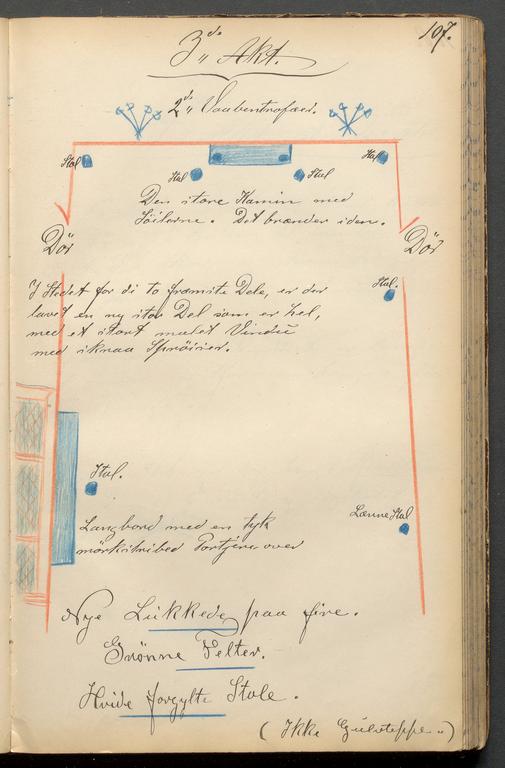 107.
3die Akt.
2de Vaabentrofæer.
Stol
Stol
Stol
Stol
Den store Kamin med
Söilerne. Det brænder i den.
Dör
Dör
I Stedet for di to framste Dele, er der
lavet en ny stor Del som er hel,
med et stort malet Vindu
med skraa Sprösser.
Stol.
Stol.
Langbord med en tyk
mörkstribed Portjere over
Lænne Stol
Nye Lukkede paa fire.
Grønne Telter.
Hvide forgylte Stole.
(Ikke Gulvteppe.)